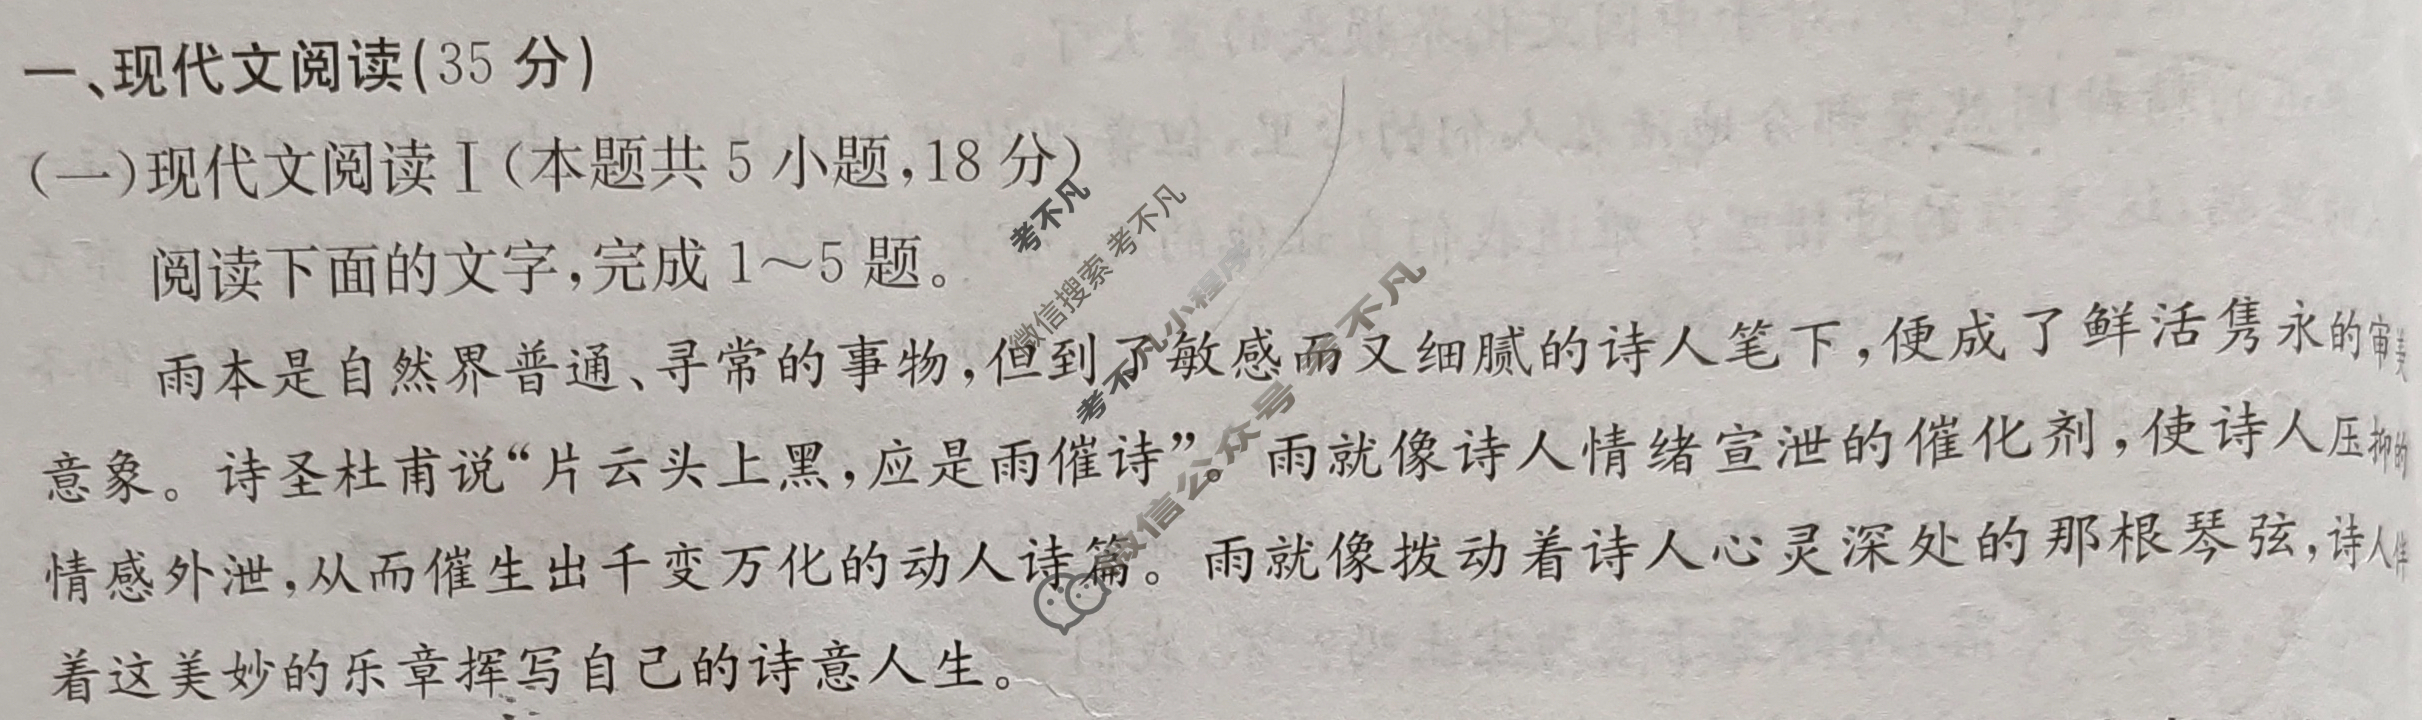 一、现代文阅读(35 分)
(一)现代文阅读Ⅰ(本题共 5 小题,18 分)
阅读下面的文字,完成 1～5 题。
雨本是自然界普通、寻常的事物,但到了敏感而又细腻的诗人笔下,便成了鲜活隽永的审美
意象。诗圣杜甫说“片云头上黑,应是雨催诗”。雨就像诗人情绪宣泄的催化剂,使诗人压抑的
情感外泄,从而催生出千变万化的动人诗篇。雨就像拨动着诗人心灵深处的那根琴弦,诗人伴
着这美妙的乐章挥写自己的诗意人生。
考不凡
微信搜索 考不凡
考不凡小程序
微信公众号 考不凡